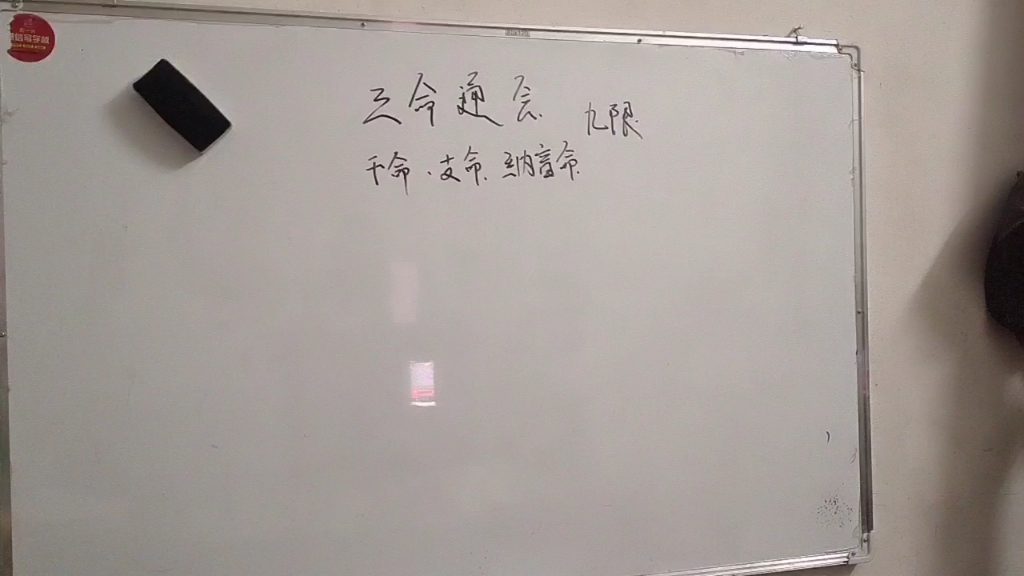 三命通会 九限
干命.支命.纳音命.